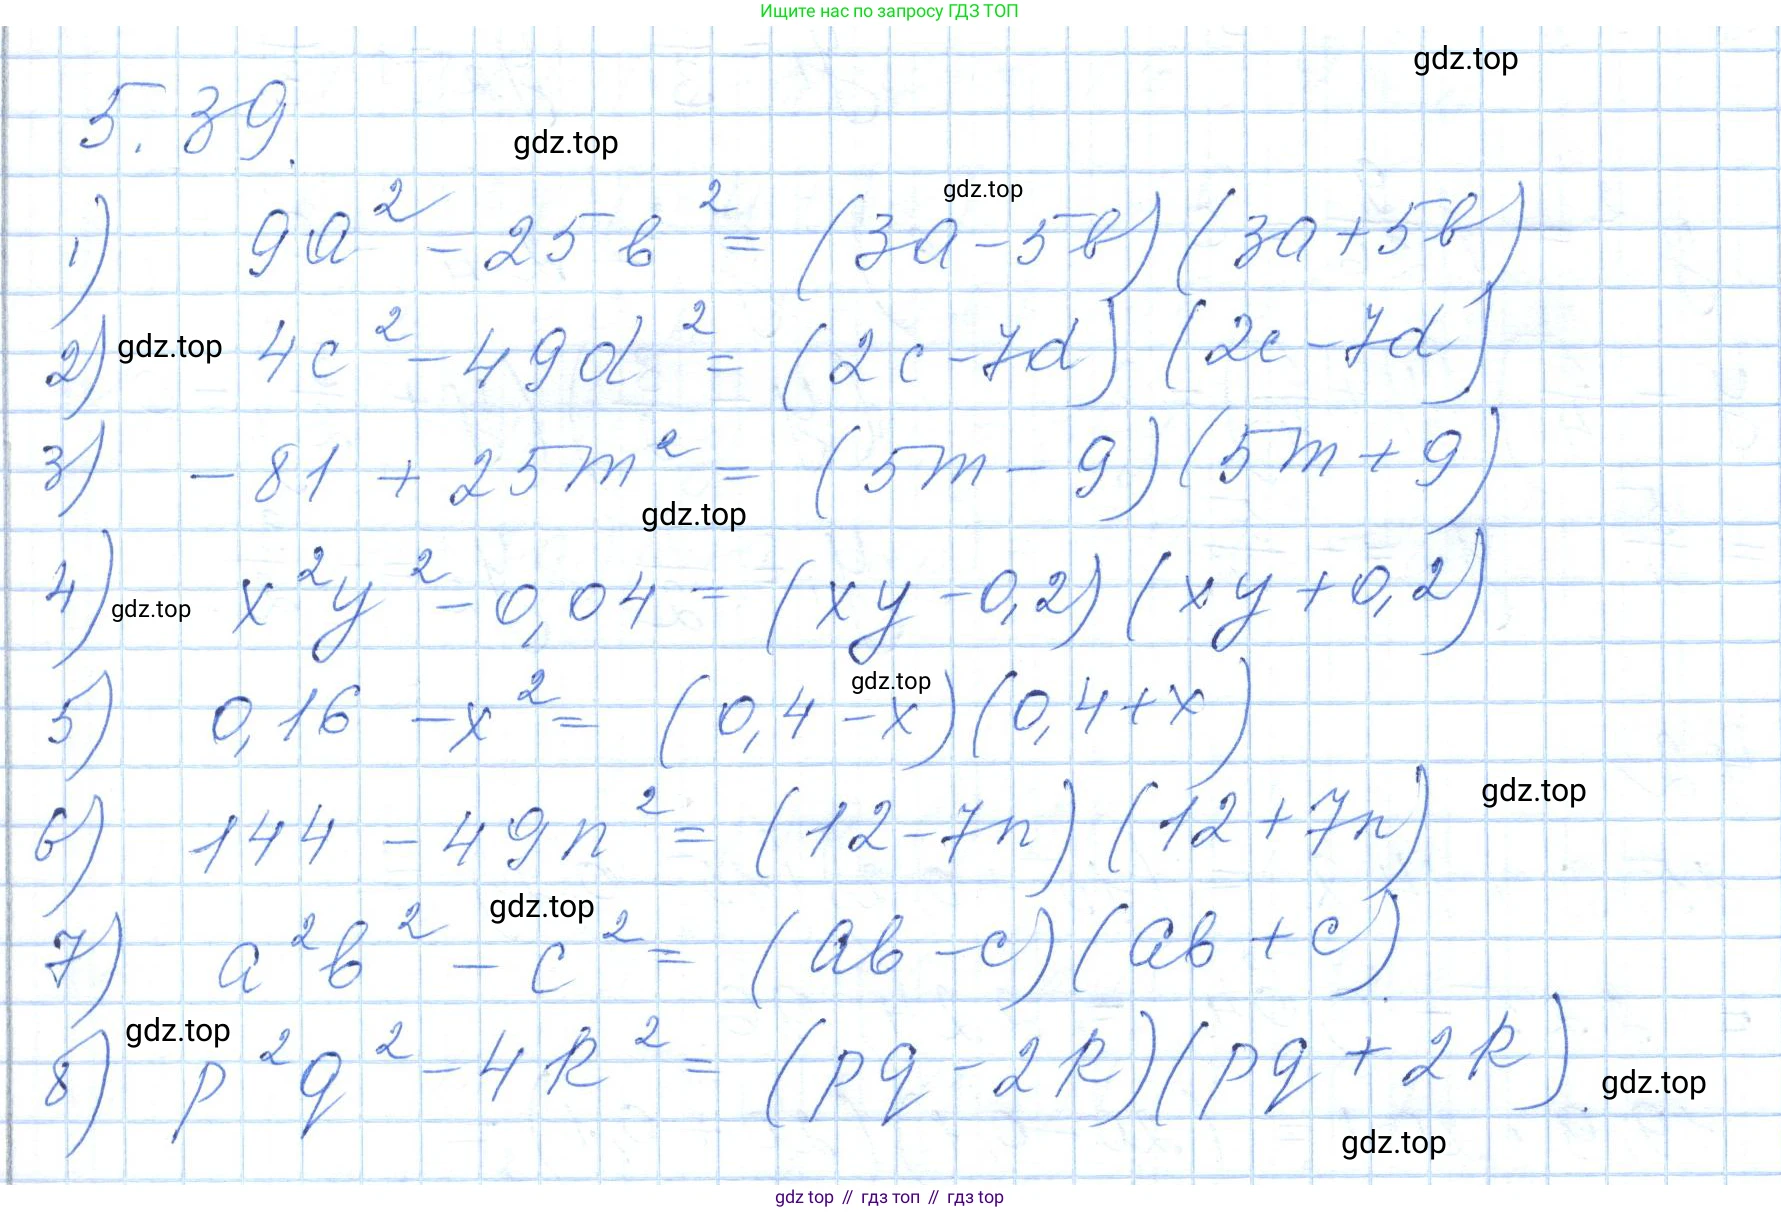 Ищите нас по запросу ГДЗ ТОП
gdz.top
5.39.
gdz.top
gdz.top
1) 9a² - 25b² = (3a - 5b) (3a + 5b)
2) gdz.top 4c² - 49d² = (2c - 7d) (2c - 7d)
3) -81 + 25m² = (5m - 9) (5m + 9)
gdz.top
4) gdz.top x²y² - 0,04 = (xy - 0,2) (xy + 0,2)
gdz.top
5) 0,16 - x² = (0,4 - x) (0,4 + x)
gdz.top
6) 144 - 49n² = (12 - 7n) (12 + 7n)
gdz.top
7) a²b² - c² = (ab - c) (ab + c).
gdz.top
8) p²q² - 4k² = (pq - 2k) (pq + 2k).
gdz.top
gdz.top
gdz top // гдз топ // гдз top